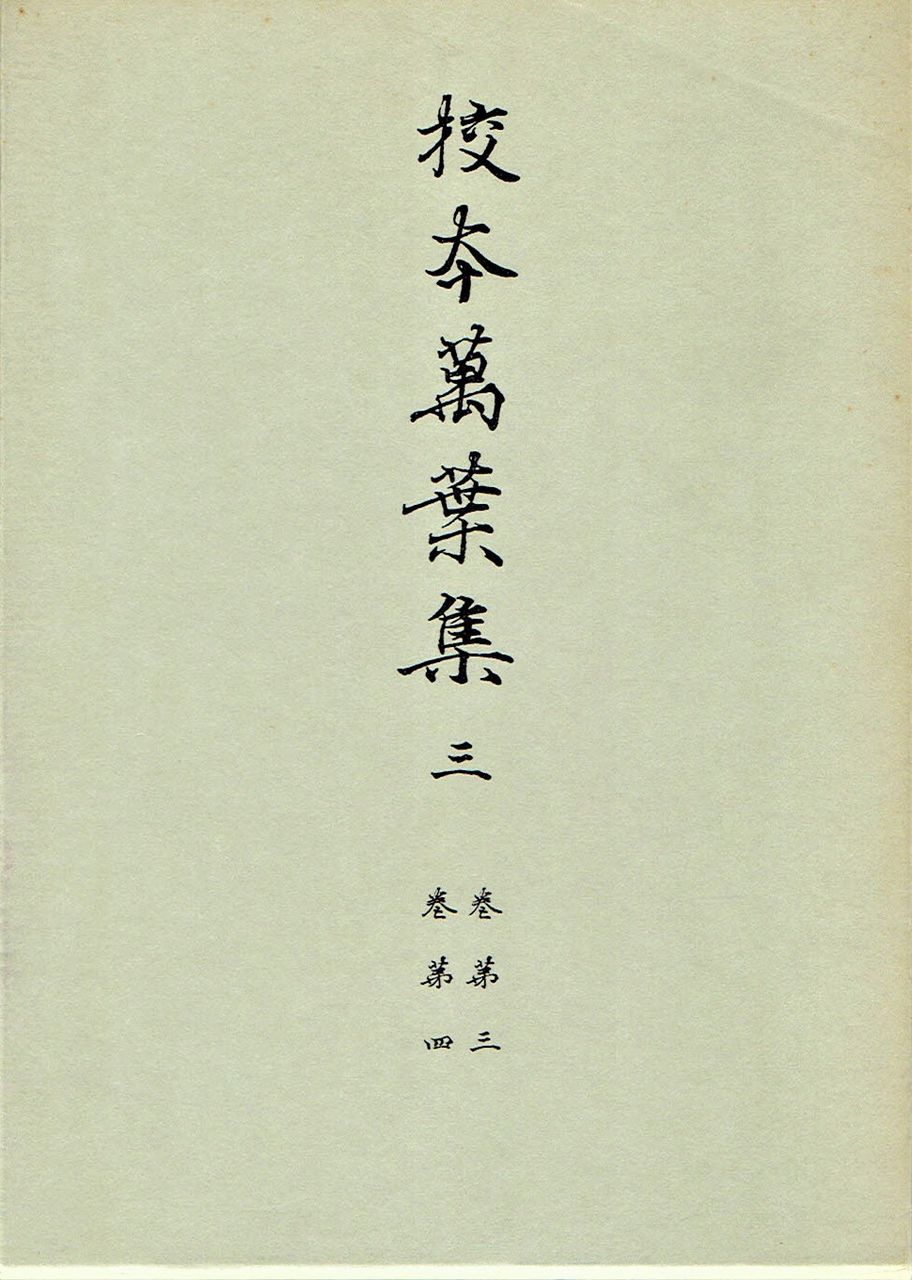 校本萬葉集 三
卷第三
卷第四